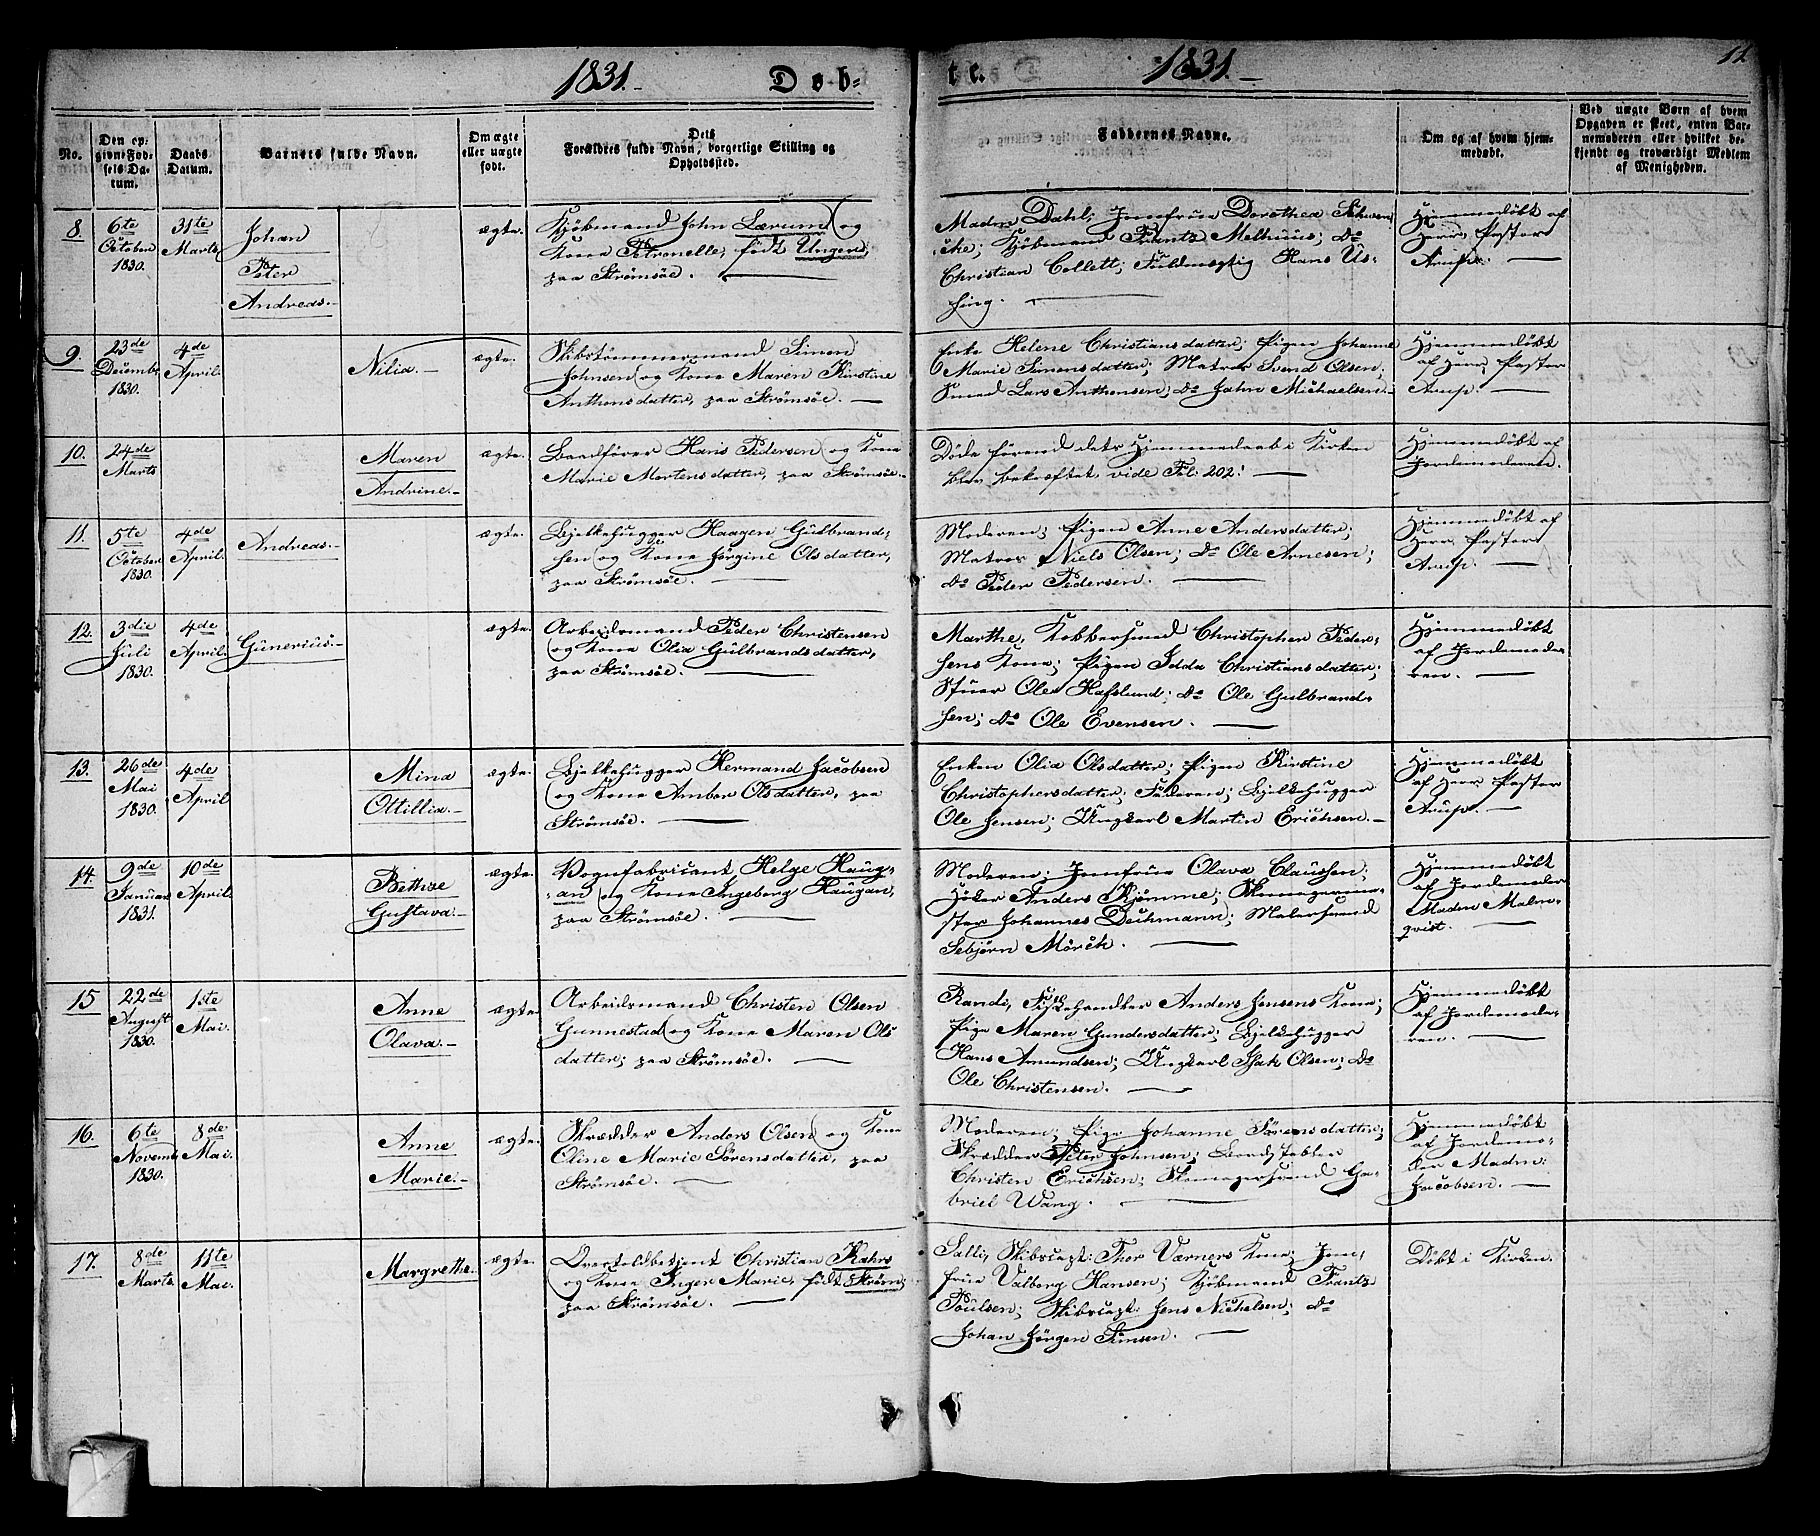 1831.
Døb-
te.
1831.
11
No.
Den op-
givne Fød-
sels Da-
tum.
Daabs
Datum.
Barnets fulde Navn.
Om ægte
eller uægte
født.
Dets
Forældres fulde Navn, borgerlige Stilling og
Opholdssted.
Faddernes Navne.
Om og af hvem hjem-
medøbt.
Ved uægte Børn af hvem
Opgaven er skeet, enten Bar-
nemoderen eller hvilket be-
kjendt og troværdigt Medlem
af Menigheden.
8.
6te
October
1830.
31te
Marts
Johan
Peter
Andreas.
ægte.
Kjøbmand John Lærum og
Kone Petronelle, født Unger,
paa Strømsøe.
Madm Dahl; Jomfrue Dorothea Schwen-
cke; Kjøbmand Frantz Melhuus; do
Christian Collett; Fuldmægtig Hans Us-
sing.
Hjemmedøbt af
Herr Pastor
Arup.
9.
23de
Decembr
1830.
4de
April
Nilia.
ægte.
Skibstømmermand Simon
Johnsen og Kone Maren Kirstine
Anthonsdatter, paa Strømsøe.
Enke Helene Christiansdatter; Pigen Johanne
Marie Simensdatter; Matros Svend Olsen;
Smed Lars Anthonsen; do John Michaelsen.
Hjemmedøbt
af Herr Pastor
Arup.
10.
24de
Marts
Maren
Andrine.
ægte.
Baadfører Hans Pedersen og Kone
Marie Mortensdatter, paa Strømsøe.
Døde førend dets Hjemmedaab i Kirken
blev bekræftet, vide Fol: 202.
Hjemmedøbt af
Jordemoderen.
11.
5te
October
1830.
4de
April
Andreas.
ægte.
Bjelkehugger Haagen Gulbrand-
sen og Kone Jørgine Olsdatter,
paa Strømsøe.
Moderen; Pigen Anne Andersdatter;
Matros Niels Olsen; do Ole Arnesen;
do Peder Pedersen.
Hjemmedøbt af
Herr Pastor
Arup.
12.
3die
Juli
1830.
4de
April
Gunerius.
ægte.
Arbeidsmand Peder Christensen
og Kone Olia Gulbrandsdatter,
paa Strømsøe.
Marthe, Kobbersmed Christopher Peder-
sens Kone; Pigen Idda Christiansdatter;
Stuer Ole Hafslund; do Ole Gulbrand-
sen; do Ole Evensen.
Hjemmedøbt
af Jordemode-
ren.
13.
26de
Mai
1830.
4de
April
Mina
Ottillia.
ægte.
Bjelkehugger Hermand Jacobsen
og Kone Ambor Olsdatter, paa
Strømsøe.
Enken Olia Olsdatter; Pigen Kirstine
Christophersdatter; Faderen; Bjelkehugger
Ole Jensen; Ungkarl Martin Erichsen.
Hjemmedøbt
af Herr Pastor
Arup.
14.
9de
Januar
1831.
10de
April
Bethze
Gustava.
ægte.
Vognfabricant Helge Haug-
an og Kone Ingeborg Haugan,
paa Strømsøe.
Moderen; Jomfrue Olava Claussen;
Høker Anders Kjømme; Skomagerme-
ster Johannes Dechmann; Malersvend
Sebjørn Mørch.
Hjemmedøbt
af Jordemoder
Madm Malm-
qvist.
15
22de
August
1830.
1ste
Mai.
Anne
Olava.
ægte.
Arbeidsmand Christen Olsen
Gunnestad og Kone Maren Ols
datter, paa Strømsøe.
Randi, Fiskehandler Anders Jensens Kone;
Pige Maren Gundersdatter; Bjelkehugger
Hans Amundsen; Ungkarl Isak Olsen; do
Ole Christensen.
Hjemmedøbt
af Jordemode-
ren.
16.
6te
Novembr
1830.
8de
Mai.
Anne
Marie.
ægte.
Skrædder Anders Olsen og Kone
Oline Marie Sørensdatter, paa
Strømsøe.
Moderen; Pige Johanne Sørensdatter;
Skrædder Peter Johnsen; Bordstabler
Christen Erichsen; Skomagersvend Ga-
briel Wang.
Hjemmedøbt
af Jordemo-
der Madm:
Jacobsen.
17.
8de
Marts
11te
Mai.
Margrethe.
ægte.
Overtoldbetjent Christian Kahrs
og Kone Inger Marie, født Strøm,
paa Strømsøe.
Salli, Skibscapt: Thor Værners Kone; Jom-
frue Valborg Hansen; Kjøbmand Frantz
Poulsen; Skibscapt: Jens Nichelsen; do
Johan Jørgen Simsen.
Døbt i Kirken.